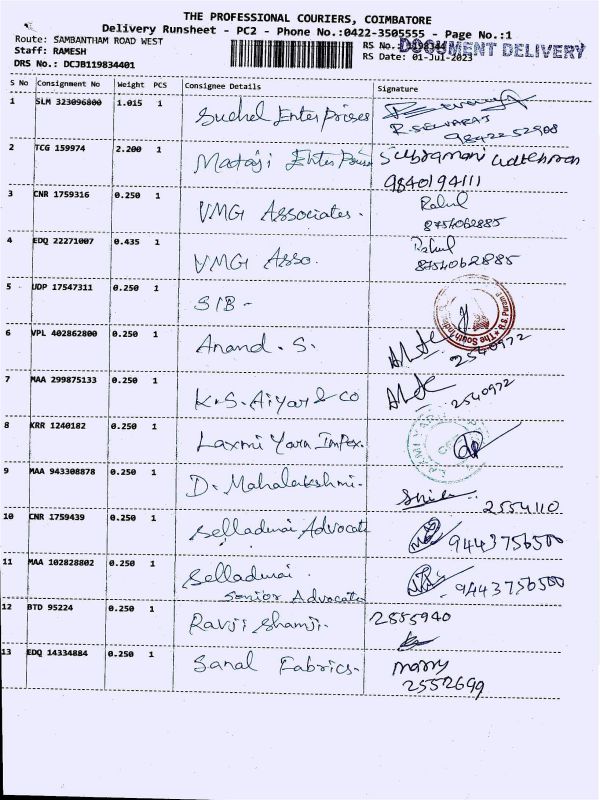 THE PROFESSIONAL COURIERS, COIMBATORE
Delivery Runsheet - PC2 - Phone No.:0422-3505555 - Page No.:1
Route: SAMBANTHAM ROAD WEST
Staff: RAMESH
DRS No.: DCJB119834401
RS No.:
DOCUMENT DELIVERY
RS Date: 01-Jul-2023
S No Consignment No Weight PCS Consignee Details Signature
1 SLM 323096800 1.015 1 Suchel Enter Prises
R. SELVARAJ
9842252908
2 TCG 159974 2.200 1 Mataji Enter Prises Subramani watchman
9840194111
3 CNR 1759316 0.250 1 VMG Associates. Rahul
8754062885
4 EDQ 22271007 0.435 1 VMG Asso. Rahul
8754062885
5 UDP 17547311 0.250 1 SIB -
6 VPL 402862800 0.250 1 Anand . S.
2540972
7 MAA 299875133 0.250 1 K.S. Aiyar & Co
2540972
8 KRR 1240182 0.250 1 Laxmi Yarn Impex.
9 MAA 943308878 0.250 1 D. Mahalakshmi.
2554110
10 CNR 1759439 0.250 1 Selladurai Advocate
9443756500
11 MAA 102828802 0.250 1 Selladurai
Senior Advocate
9443756500
12 BTD 95224 0.250 1 Ravji Shamji. 2855940
13 EDQ 14334884 0.250 1 Sanal Fabrics- marry
2552699